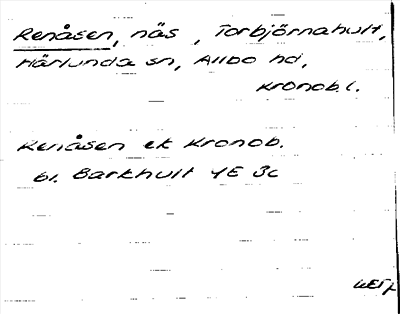 Renåsen, näs, Torbjörnahult,
Härlunda sn, Allbo hd,
Kronob. l.
Renåsen ek Kronob.
bl. Barkhult 4E 3c